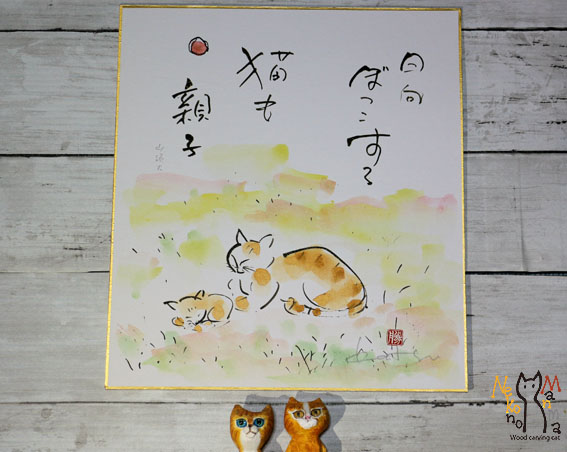 日向
ぼっこする
猫も
親子
勝
Neko no Mana
Wood carving cat